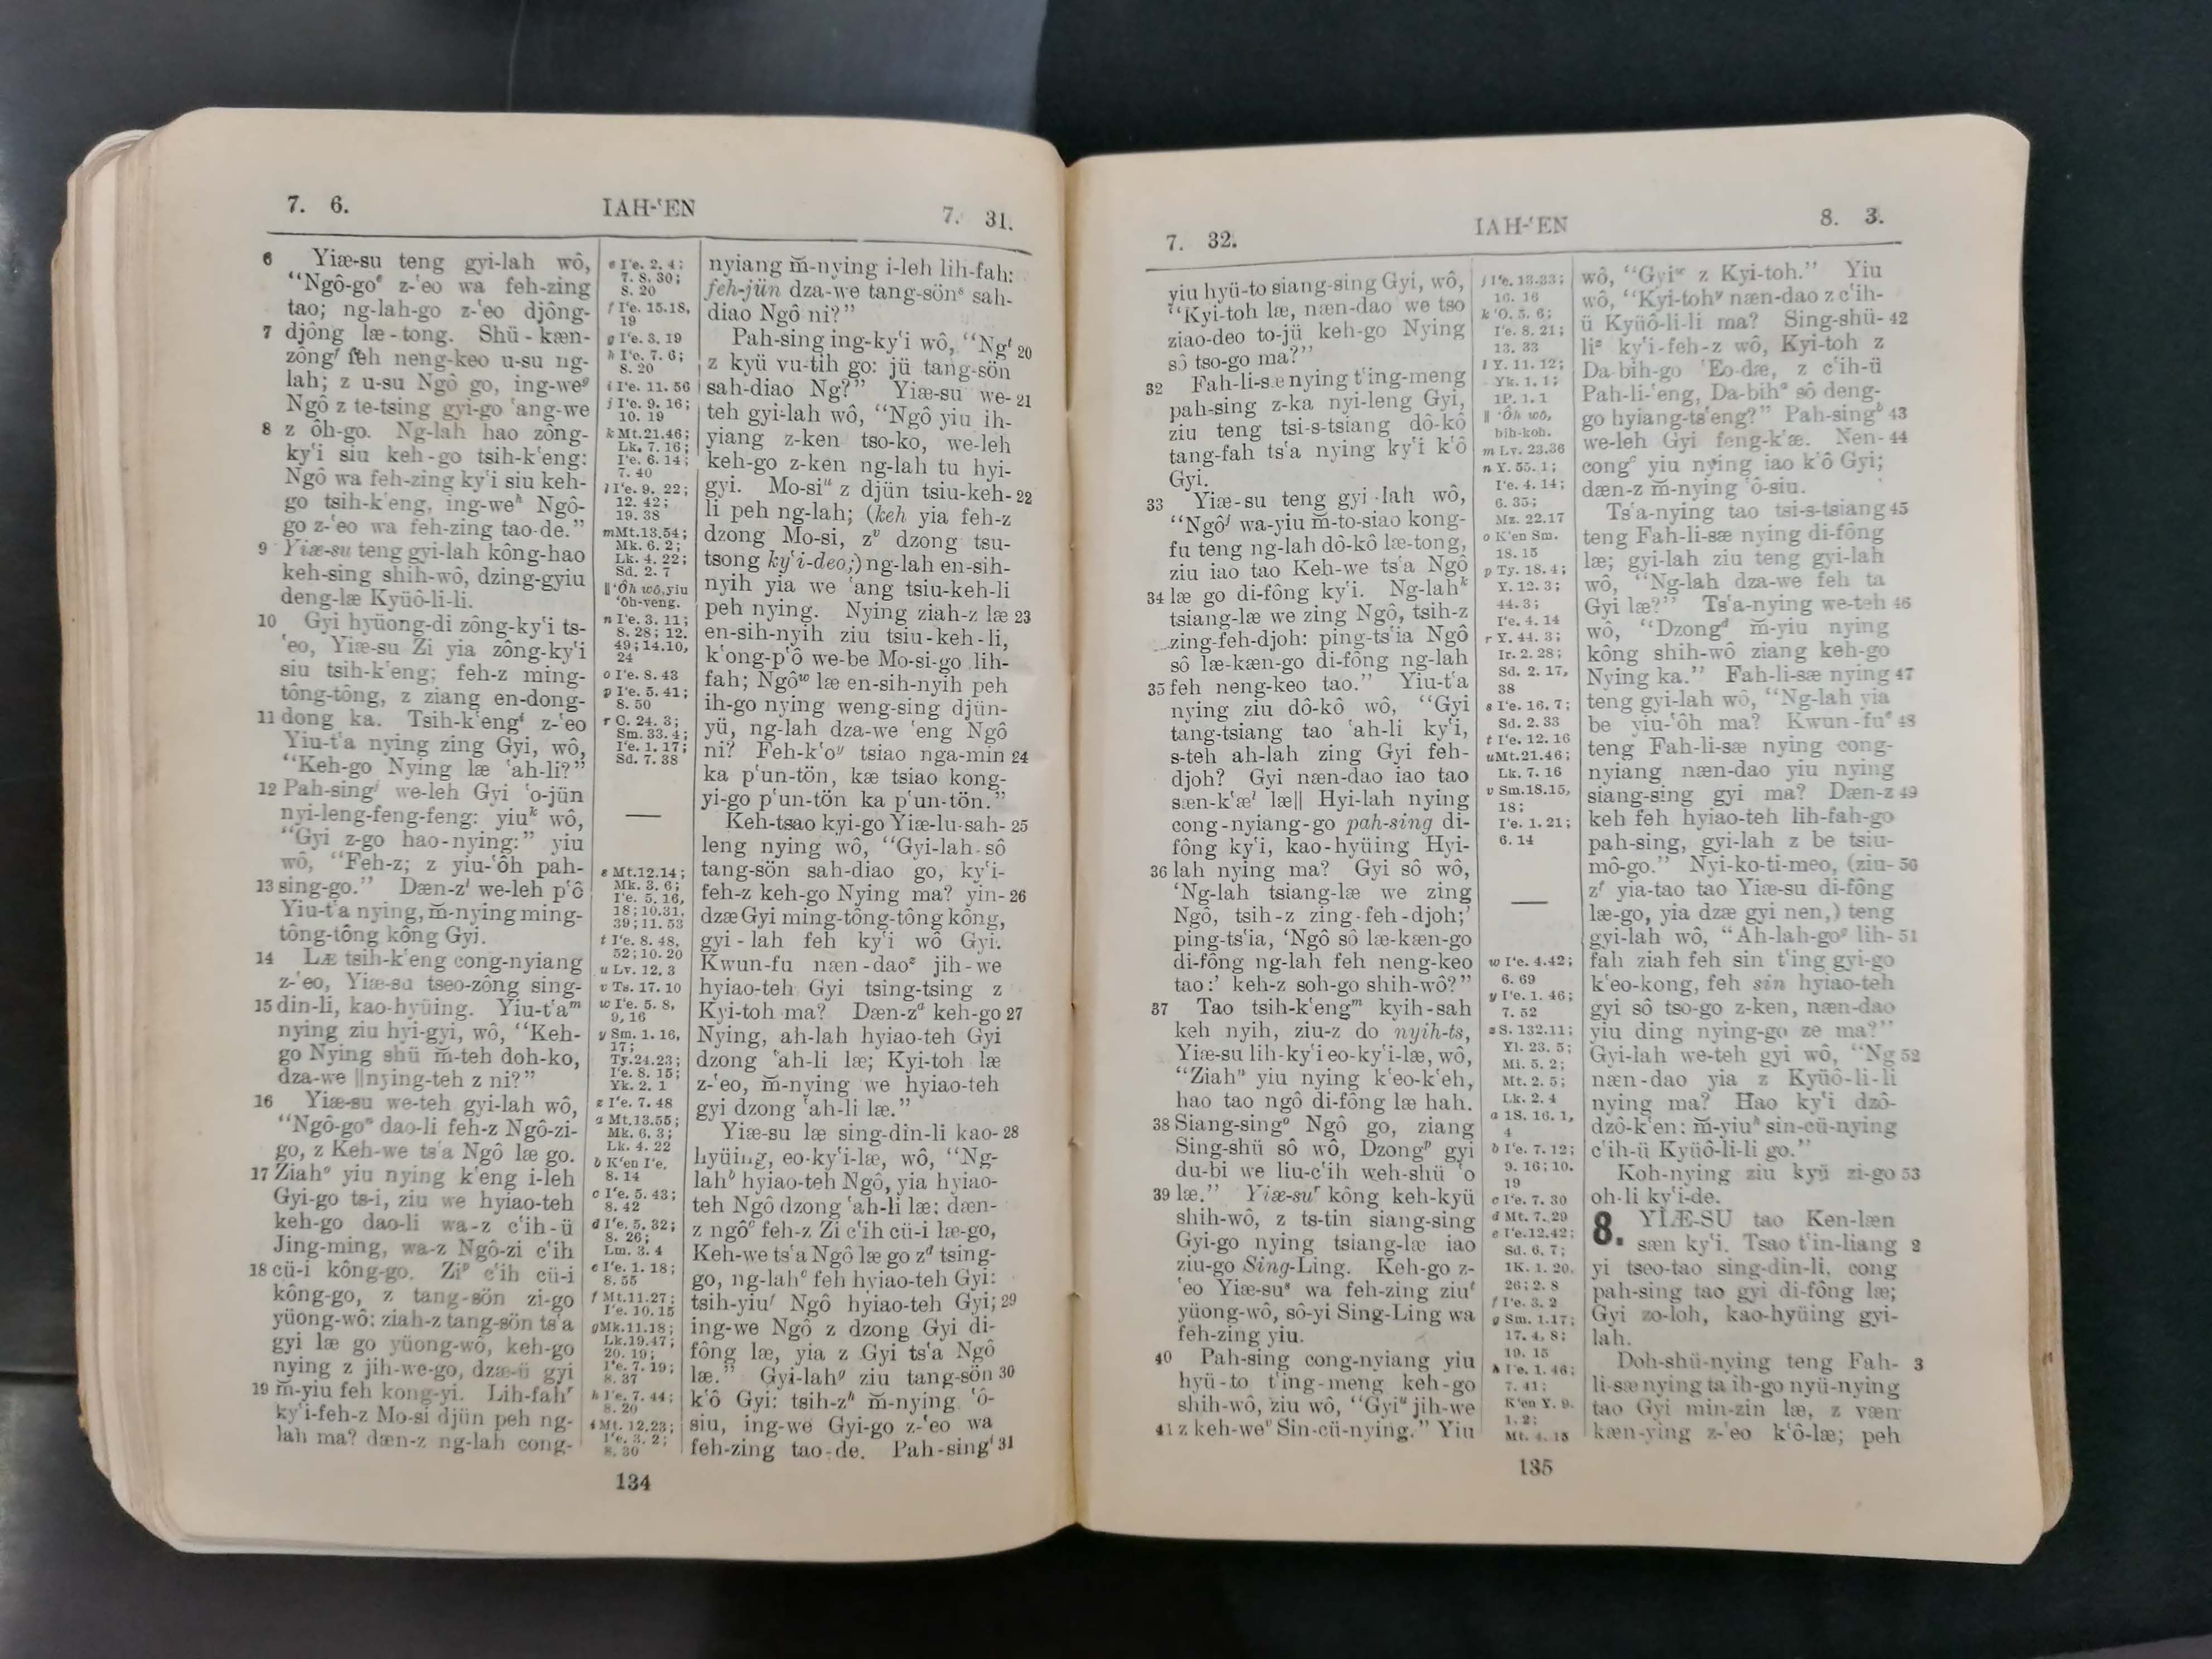 7. 6.
IAH-ʻEN
7. 31.
6 Yiæ-su teng gyi-lah wô,
“Ngô-goᵉ z-ʻeo wa feh-zing
tao; ng-lah-go z-ʻeo djông-
7 djông læ-tong. Shü-kæn-
zôngᶠ feh neng-keo u-su ng-
lah; z u-su Ngô go, ing-weᵍ
Ngô z te-tsing gyi-go ʻang-we
8 z ôh-go. Ng-lah hao zông-
kyʻi siu keh-go tsih-kʻeng:
Ngô wa feh-zing kyʻi siu keh-
go tsih-kʻeng, ing-weʰ Ngô-
go z-ʻeo wa feh-zing tao-de.”
9 Yiæ-su teng gyi-lah kông-hao
keh-sing shih-wô, dzing-gyiu
deng-læ Kyüô-li-li.
10 Gyi hyüong-di zông-kyʻi ts-
ʻeo, Yiæ-su Zi yia zông-kyʻi
siu tsih-kʻeng; feh-z ming-
tông-tông, z ziang en-dong-
11 dong ka. Tsih-kʻengⁱ z-ʻeo
Yiu-tʻa nying zing Gyi, wô,
“Keh-go Nying læ ʻah-li?”
12 Pah-singʲ we-leh Gyi ʻo-jün
nyi-leng-feng-feng: yiuᵏ wô,
“Gyi z-go hao-nying:” yiu
wô, “Feh-z; z yiu-ʻôh pah-
13 sing-go.” Dæn-zˡ we-leh pʻô
Yiu-tʻa nying, m̆-nying ming-
tông-tông kông Gyi.
14 Læ tsih-kʻeng cong-nyiang
z-ʻeo, Yiæ-su tseo-zông sing-
15 din-li, kao-hyüing. Yiu-tʻaᵐ
nying ziu hyi-gyi, wô, “Keh-
go Nying shü m̆-teh doh-ko,
dza-we ||nying-teh z ni?”
16 Yiæ-su we-teh gyi-lah wô,
“Ngô-goⁿ dao-li feh-z Ngô-zi-
go, z Keh-we tsʻa Ngô læ go.
17 Ziahᵒ yiu nying kʻeng i-leh
Gyi-go ts-i, ziu we hyiao-teh
keh-go dao-li wa-z cʻih-ü
Jing-ming, wa-z Ngô-zi cʻih
18 cü-i kông-go. Ziᵖ cʻih cü-i
kông-go, z tang-sön zi-go
yüong-wô: ziah-z tang-sön tsʻa
gyi læ go yüong-wô, keh-go
nying z jih-we-go, dzæ-ü gyi
19 m̆-yiu feh kong-yi. Lih-fahʳ
kyʻi-feh-z Mo-si djün peh ng-
lah ma? dæn-z ng-lah cong-
e Iʻe. 2. 4;
7. 8, 30;
8. 20
f Iʻe. 15.18,
19
g Iʻe. 3. 19
h Iʻe. 7. 6;
8. 20
i Iʻe. 11. 56
j Iʻe. 9. 16;
10. 19
k Mt.21.46;
Lk. 7. 16;
Iʻe. 6. 14;
7. 40
l Iʻe. 9. 22;
12. 42;
19. 38
m Mt.13.54;
Mk. 6. 2;
Lk. 4. 22;
Sd. 2. 7
|| ʻÔh wô, yiu
ʻôh-veng.
n Iʻe. 3. 11;
8. 28; 12.
49; 14.10,
24
o Iʻe. 8. 43
p Iʻe. 5. 41;
8. 50
r C. 24. 3;
Sm. 33. 4;
Iʻe. 1. 17;
Sd. 7. 38
s Mt.12.14;
Mk. 3. 6;
Iʻe. 5. 16,
18; 10.31,
39; 11. 53
t Iʻe. 8. 48,
52; 10. 20
u Lv. 12. 3
v Ts. 17. 10
w Iʻe. 5. 8,
9, 16
y Sm. 1. 16,
17;
Ty.24.23;
Iʻe. 8. 15;
Yk. 2. 1
z Iʻe. 7. 48
a Mt.13.55;
Mk. 6. 3;
Lk. 4. 22
b Kʻen Iʻe.
8. 14
c Iʻe. 5. 43;
8. 42
d Iʻe. 5. 32;
8. 26;
Lm. 3. 4
e Iʻe. 1. 18;
8. 55
f Mt.11.27;
Iʻe. 10. 15
g Mk.11.18;
Lk.19.47;
20. 19;
Iʻe. 7. 19;
8. 37
h Iʻe. 7. 44;
8. 20
i Mt. 12.23;
Iʻe. 3. 2;
8. 30
nyiang m̆-nying i-leh lih-fah:
feh-jün dza-we tang-sönˢ sah-
diao Ngô ni?”
Pah-sing ing-kyʻi wô, “Ngᵗ 20
z kyü vu-tih go: jü tang-sön
sah-diao Ng?” Yiæ-su we- 21
teh gyi-lah wô, “Ngô yiu ih-
yiang z-ken tso-ko, we-leh
keh-go z-ken ng-lah tu hyi-
gyi. Mo-siᵘ z djün tsiu-keh- 22
li peh ng-lah; (keh yia feh-z
dzong Mo-si, zᵛ dzong tsu-
tsong kyʻi-deo;) ng-lah en-sih-
nyih yia we ʻang tsiu-keh-li
peh nying. Nying ziah-z læ 23
en-sih-nyih ziu tsiu-keh-li,
kʻong-pʻô we-be Mo-si-go lih-
fah; Ngôʷ læ en-sih-nyih peh
ih-go nying weng-sing djün-
yü, ng-lah dza-we ʻeng Ngô
ni? Feh-kʻoʸ tsiao nga-min 24
ka pʻun-tön, kæ tsiao kong-
yi-go pʻun-tön ka pʻun-tön.”
Keh-tsao kyi-go Yiæ-lu-sah- 25
leng nying wô, “Gyi-lah sô
tang-sön sah-diao go, kyʻi-
feh-z keh-go Nying ma? yin- 26
dzæ Gyi ming-tông-tông kông,
gyi-lah feh kyʻi wô Gyi.
Kwun-fu næn-daoᶻ jih-we
hyiao-teh Gyi tsing-tsing z
Kyi-toh ma? Dæn-zᵃ keh-go 27
Nying, ah-lah hyiao-teh Gyi
dzong ʻah-li læ; Kyi-toh læ
z-ʻeo, m̆-nying we hyiao-teh
gyi dzong ʻah-li læ.”
Yiæ-su læ sing-din-li kao- 28
hyüing, eo-kyʻi-læ, wô, “Ng-
lahᵇ hyiao-teh Ngô, yia hyiao-
teh Ngô dzong ʻah-li læ: dæn-
z ngôᶜ feh-z Zi cʻih cü-i læ-go,
Keh-we tsʻa Ngô læ go zᵈ tsing-
go, ng-lahᵉ feh hyiao-teh Gyi:
tsih-yiuᶠ Ngô hyiao-teh Gyi; 29
ing-we Ngô z dzong Gyi di-
fông læ, yia z Gyi tsʻa Ngô
læ.” Gyi-lahᵍ ziu tang-sön 30
kʻô Gyi: tsih-zʰ m̆-nying ʻô-
siu, ing-we Gyi-go z-ʻeo wa
feh-zing tao-de. Pah-singⁱ 31
134
7. 32.
IAH-ʻEN
8. 3.
yiu hyü-to siang-sing Gyi, wô,
“Kyi-toh læ, næn-dao we tso
ziao-deo to-jü keh-go Nying
sô tso-go ma?”
32 Fah-li-sæ nying tʻing-meng
pah-sing z-ka nyi-leng Gyi,
ziu teng tsi-s-tsiang dô-kô
tang-fah tsʻa nying kyʻi kʻô
Gyi.
33 Yiæ-su teng gyi-lah wô,
“Ngôʲ wa-yiu m̆-to-siao kong-
fu teng ng-lah dô-kô læ-tong,
ziu iao tao Keh-we tsʻa Ngô
34 læ go di-fông kyʻi. Ng-lahᵏ
tsiang-læ we zing Ngô, tsih-z
zing-feh-djoh: ping-tsʻia Ngô
sô læ-kæn-go di-fông ng-lah
35 feh neng-keo tao.” Yiu-tʻa
nying ziu dô-kô wô, “Gyi
tang-tsiang tao ʻah-li kyʻi,
s-teh ah-lah zing Gyi feh-
djoh? Gyi næn-dao iao tao
sæn-kʻæˡ læ|| Hyi-lah nying
cong-nyiang-go pah-sing di-
fông kyʻi, kao-hyüing Hyi-
36 lah nying ma? Gyi sô wô,
ʻNg-lah tsiang-læ we zing
Ngô, tsih-z zing-feh-djoh;’
ping-tsʻia, ʻNgô sô læ-kæn-go
di-fông ng-lah feh neng-keo
tao:’ keh-z soh-go shih-wô?”
37 Tao tsih-kʻengᵐ kyih-sah
keh nyih, ziu-z do nyih-ts,
Yiæ-su lih-kyʻi eo-kyʻi-læ, wô,
“Ziahⁿ yiu nying kʻeo-kʻeh,
hao tao ngô di-fông læ hah.
38 Siang-singᵒ Ngô go, ziang
Sing-shü sô wô, Dzongᵖ gyi
du-bi we liu-cʻih weh-shü ʻo
39 læ.” Yiæ-suʳ kông keh-kyü
shih-wô, z ts-tin siang-sing
Gyi-go nying tsiang-læ iao
ziu-go Sing-Ling. Keh-go z-
ʻeo Yiæ-suˢ wa feh-zing ziuᵗ
yüong-wô, sô-yi Sing-Ling wa
feh-zing yiu.
40 Pah-sing cong-nyiang yiu
hyü-to tʻing-meng keh-go
shih-wô, ziu wô, “Gyiᵘ jih-we
41 z keh-weᵛ Sin-cü-nying.” Yiu
j Iʻe. 13.33;
16. 16
k ʻO. 5. 6;
Iʻe. 8. 21;
13. 33
l Y. 11. 12;
Yk. 1. 1;
1P. 1. 1
|| ʻÔh wô,
bih-koh.
m Lv. 23.36
n Y. 55. 1;
Iʻe. 4. 14;
6. 35;
Mz. 22.17
o Kʻen Sm.
18. 15
p Ty. 18. 4;
Y. 12. 3;
44. 3;
Iʻe. 4. 14
r Y. 44. 3;
Ir. 2. 28;
Sd. 2. 17,
38
s Iʻe. 16. 7;
Sd. 2. 33
t Iʻe. 12. 16
u Mt.21.46;
Lk. 7. 16
v Sm.18.15,
18;
Iʻe. 1. 21;
6. 14
w Iʻe. 4.42;
6. 69
y Iʻe. 1. 46;
7. 52
z S. 132.11;
Yl. 23. 5;
Mi. 5. 2;
Mt. 2. 5;
Lk. 2. 4
a 1S. 16. 1,
4
b Iʻe. 7. 12;
9. 16; 10.
19
c Iʻe. 7. 30
d Mt. 7. 29
e Iʻe.12.42;
Sd. 6. 7;
1K. 1. 20,
26; 2. 8
f Iʻe. 3. 2
g Sm. 1.17;
17. 4, 8;
19. 15
h Iʻe. 1. 46;
7. 41;
Kʻen Y. 9.
1, 2;
Mt. 4. 15
wô, “Gyiʷ z Kyi-toh.” Yiu
wô, “Kyi-tohʸ næn-dao z cʻih-
ü Kyüô-li-li ma? Sing-shü- 42
liᶻ kyʻi-feh-z wô, Kyi-toh z
Da-bih-go ʻEo-dæ, z cʻih-ü
Pah-li-ʻeng, Da-bihᵃ sô deng-
go hyiang-tsʻeng?” Pah-singᵇ 43
we-leh Gyi feng-kʻæ. Nen- 44
congᶜ yiu nying iao kʻô Gyi;
dæn-z m̆-nying ʻô-siu.
Tsʻa-nying tao tsi-s-tsiang 45
teng Fah-li-sæ nying di-fông
læ; gyi-lah ziu teng gyi-lah
wô, “Ng-lah dza-we feh ta
Gyi læ?” Tsʻa-nying we-teh 46
wô, “Dzongᵈ m̆-yiu nying
kông shih-wô ziang keh-go
Nying ka.” Fah-li-sæ nying 47
teng gyi-lah wô, “Ng-lah yia
be yiu-ʻôh ma? Kwun-fuᵉ 48
teng Fah-li-sæ nying cong-
nyiang næn-dao yiu nying
siang-sing gyi ma? Dæn-z 49
keh feh hyiao-teh lih-fah-go
pah-sing, gyi-lah z be tsiu-
mô-go.” Nyi-ko-ti-meo, (ziu- 50
zᶠ yia-tao tao Yiæ-su di-fông
læ-go, yia dzæ gyi nen,) teng
gyi-lah wô, “Ah-lah-goᵍ lih- 51
fah ziah feh sin tʻing gyi-go
kʻeo-kong, feh sin hyiao-teh
gyi sô tso-go z-ken, næn-dao
yiu ding nying-go ze ma?”
Gyi-lah we-teh gyi wô, “Ng 52
næn-dao yia z Kyüô-li-li
nying ma? Hao kyʻi dzô-
dzô-kʻen: m̆-yiuʰ sin-cü-nying
cʻih-ü Kyüô-li-li go.”
Koh-nying ziu kyü zi-go 53
oh-li kyʻi-de.
8. YIÆ-SU tao Ken-læn
sæn kyʻi. Tsao tʻin-liang 2
yi tseo-tao sing-din-li, cong
pah-sing tao gyi di-fông læ;
Gyi zo-loh, kao-hyüing gyi-
lah.
Doh-shü-nying teng Fah- 3
li-sæ nying ta ih-go nyü-nying
tao Gyi min-zin læ, z væn
kæn-ying z-ʻeo kʻô-læ; peh
135